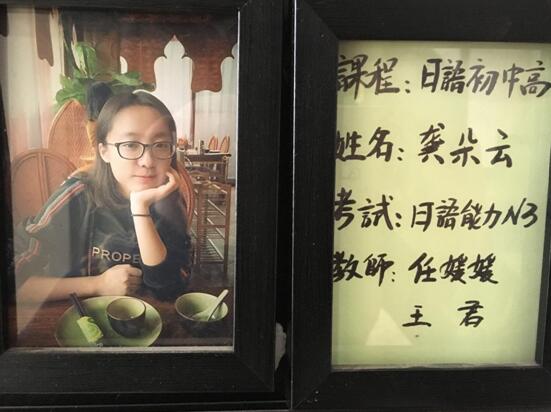 PROPE
課程：日語初中高
姓名：龚朵云
考試：日語能力N3
教師：任媛媛
王君